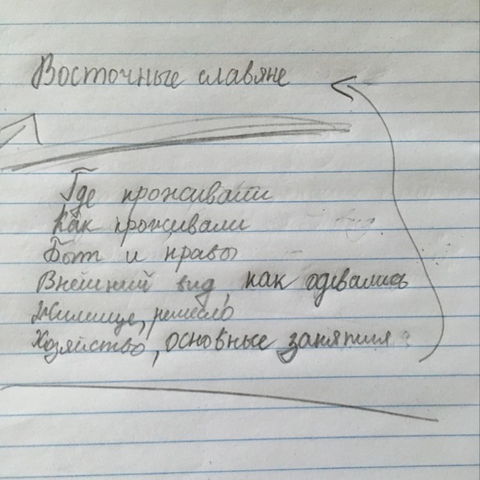 Восточные славяне
Где проживали
Как проживали
Быт и нравы
Внешний вид, как одевались
Жилище, ремесло
Хозяйство, основные занятия